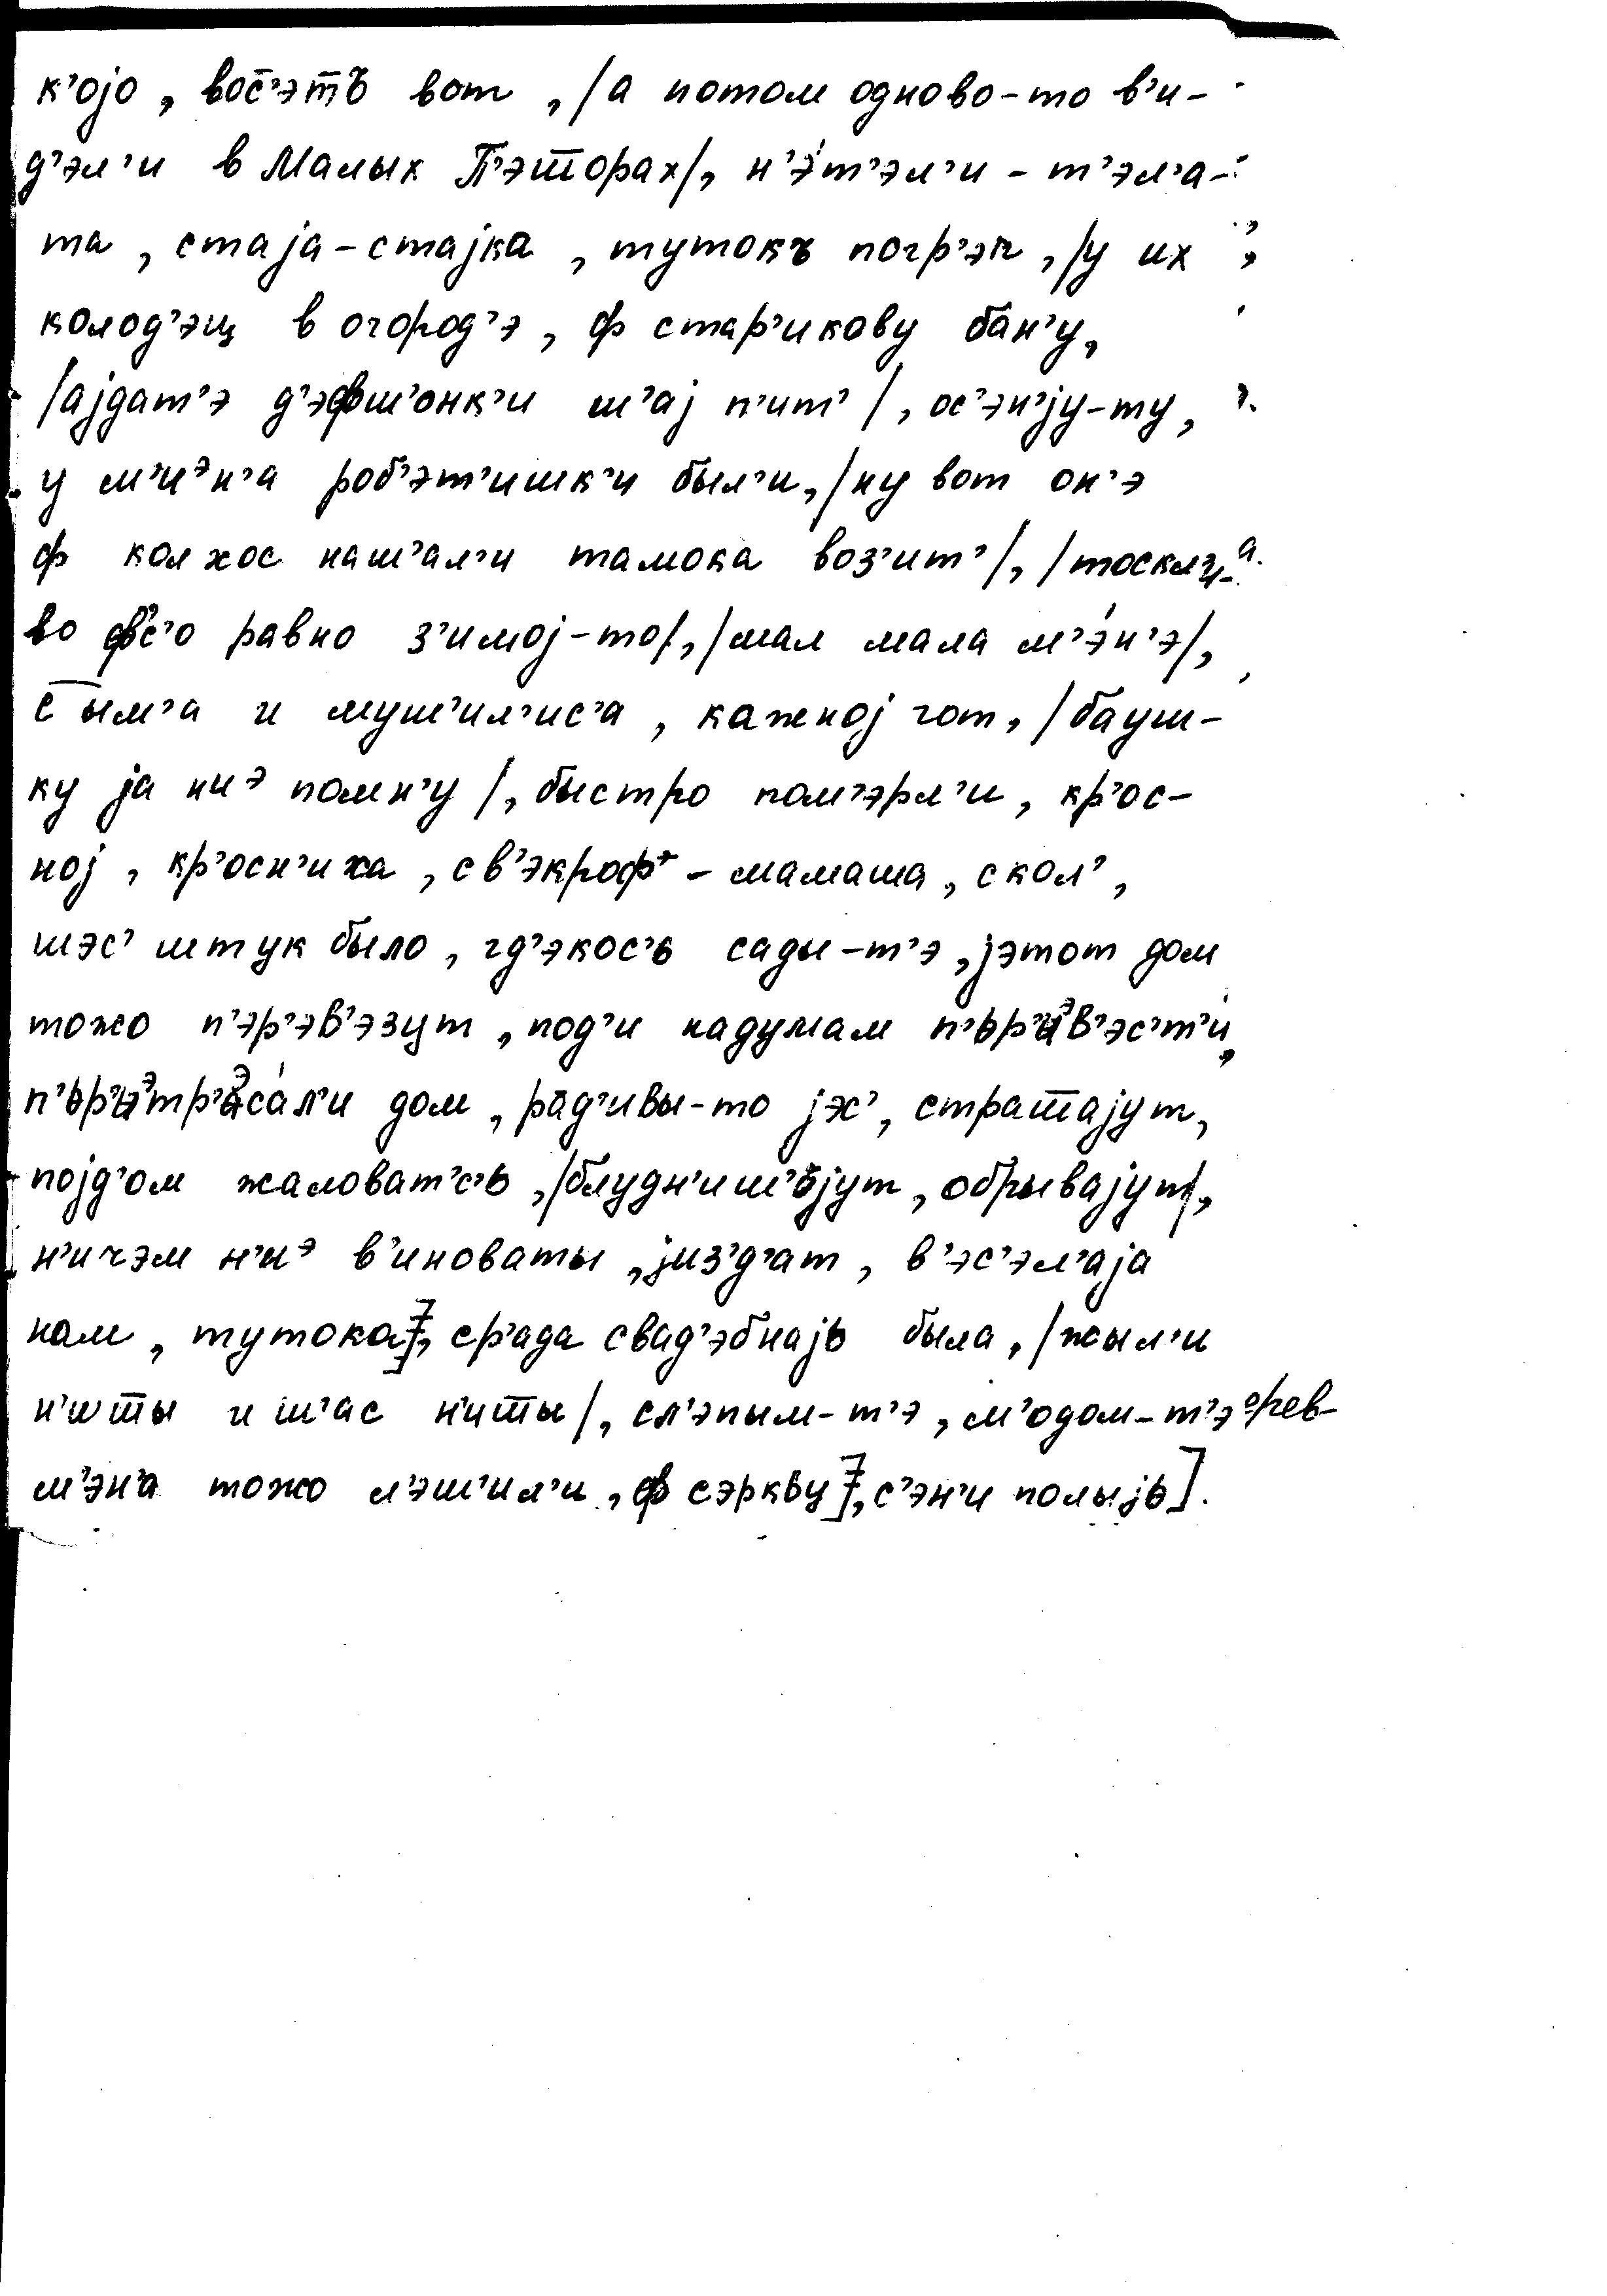 к’ојо, вос̅’эт̅ъ вот, /а потом одново-то в’и-
д’эл’и в Малых П’эт̅орах/, н’э́т’эл’и - т’эл’а-
та, стаја-стајка, тутокъ погр’эп, /у их
колод’эц в огород’э, ф стар’икову бан’у,
/ајдат’э д’эфш’онк’и ш’ај п’ит’/, ос’эн’ју-ту,
у м’иэн’а роб’эт’ишк’и был’и, /ну вот он’э
ф колхос наш’ал’и тамока воз’ит’/, /тоскл’и-
во фс’о равно з’имој-то/, /мал мала м’э́н’э/,
с̅ым’а и муш’ил’ис’а, кажној гот, /бауш-
ку ја ниэ помн’у/, быстро пом’эрл’и, кр’ос-
ној, кр’осн’иха, св’экроф’ - мамаша, скол’,
шэс’ штук было, гд’экос’ь сады-т’э, јэтот дом
тожо п’эр’эв’эзут, под’и надумам п’ьр’иэв’эс’т’и́,
п’ьр’иэтр’иэса́л’и дом, рад’ивы-то јэс’, страт̅ајут,
појд’ом жаловат’с’ь, /блудн’иш’ьјут, обрывајут/,
н’ичэм н’иэ в’иноваты, јиз’д’ат, в’эс’эл’аја
нам, тутока], ср’ада свад’эбнајь была, /жыл’и
н’ит̅ы и ш’ас н’ит̅ы/, сл’эпым-т’э, м’одом-т’э
м’эн’а тожо л’эш’ил’и, ф сэркву], с’эн’и полыјь].